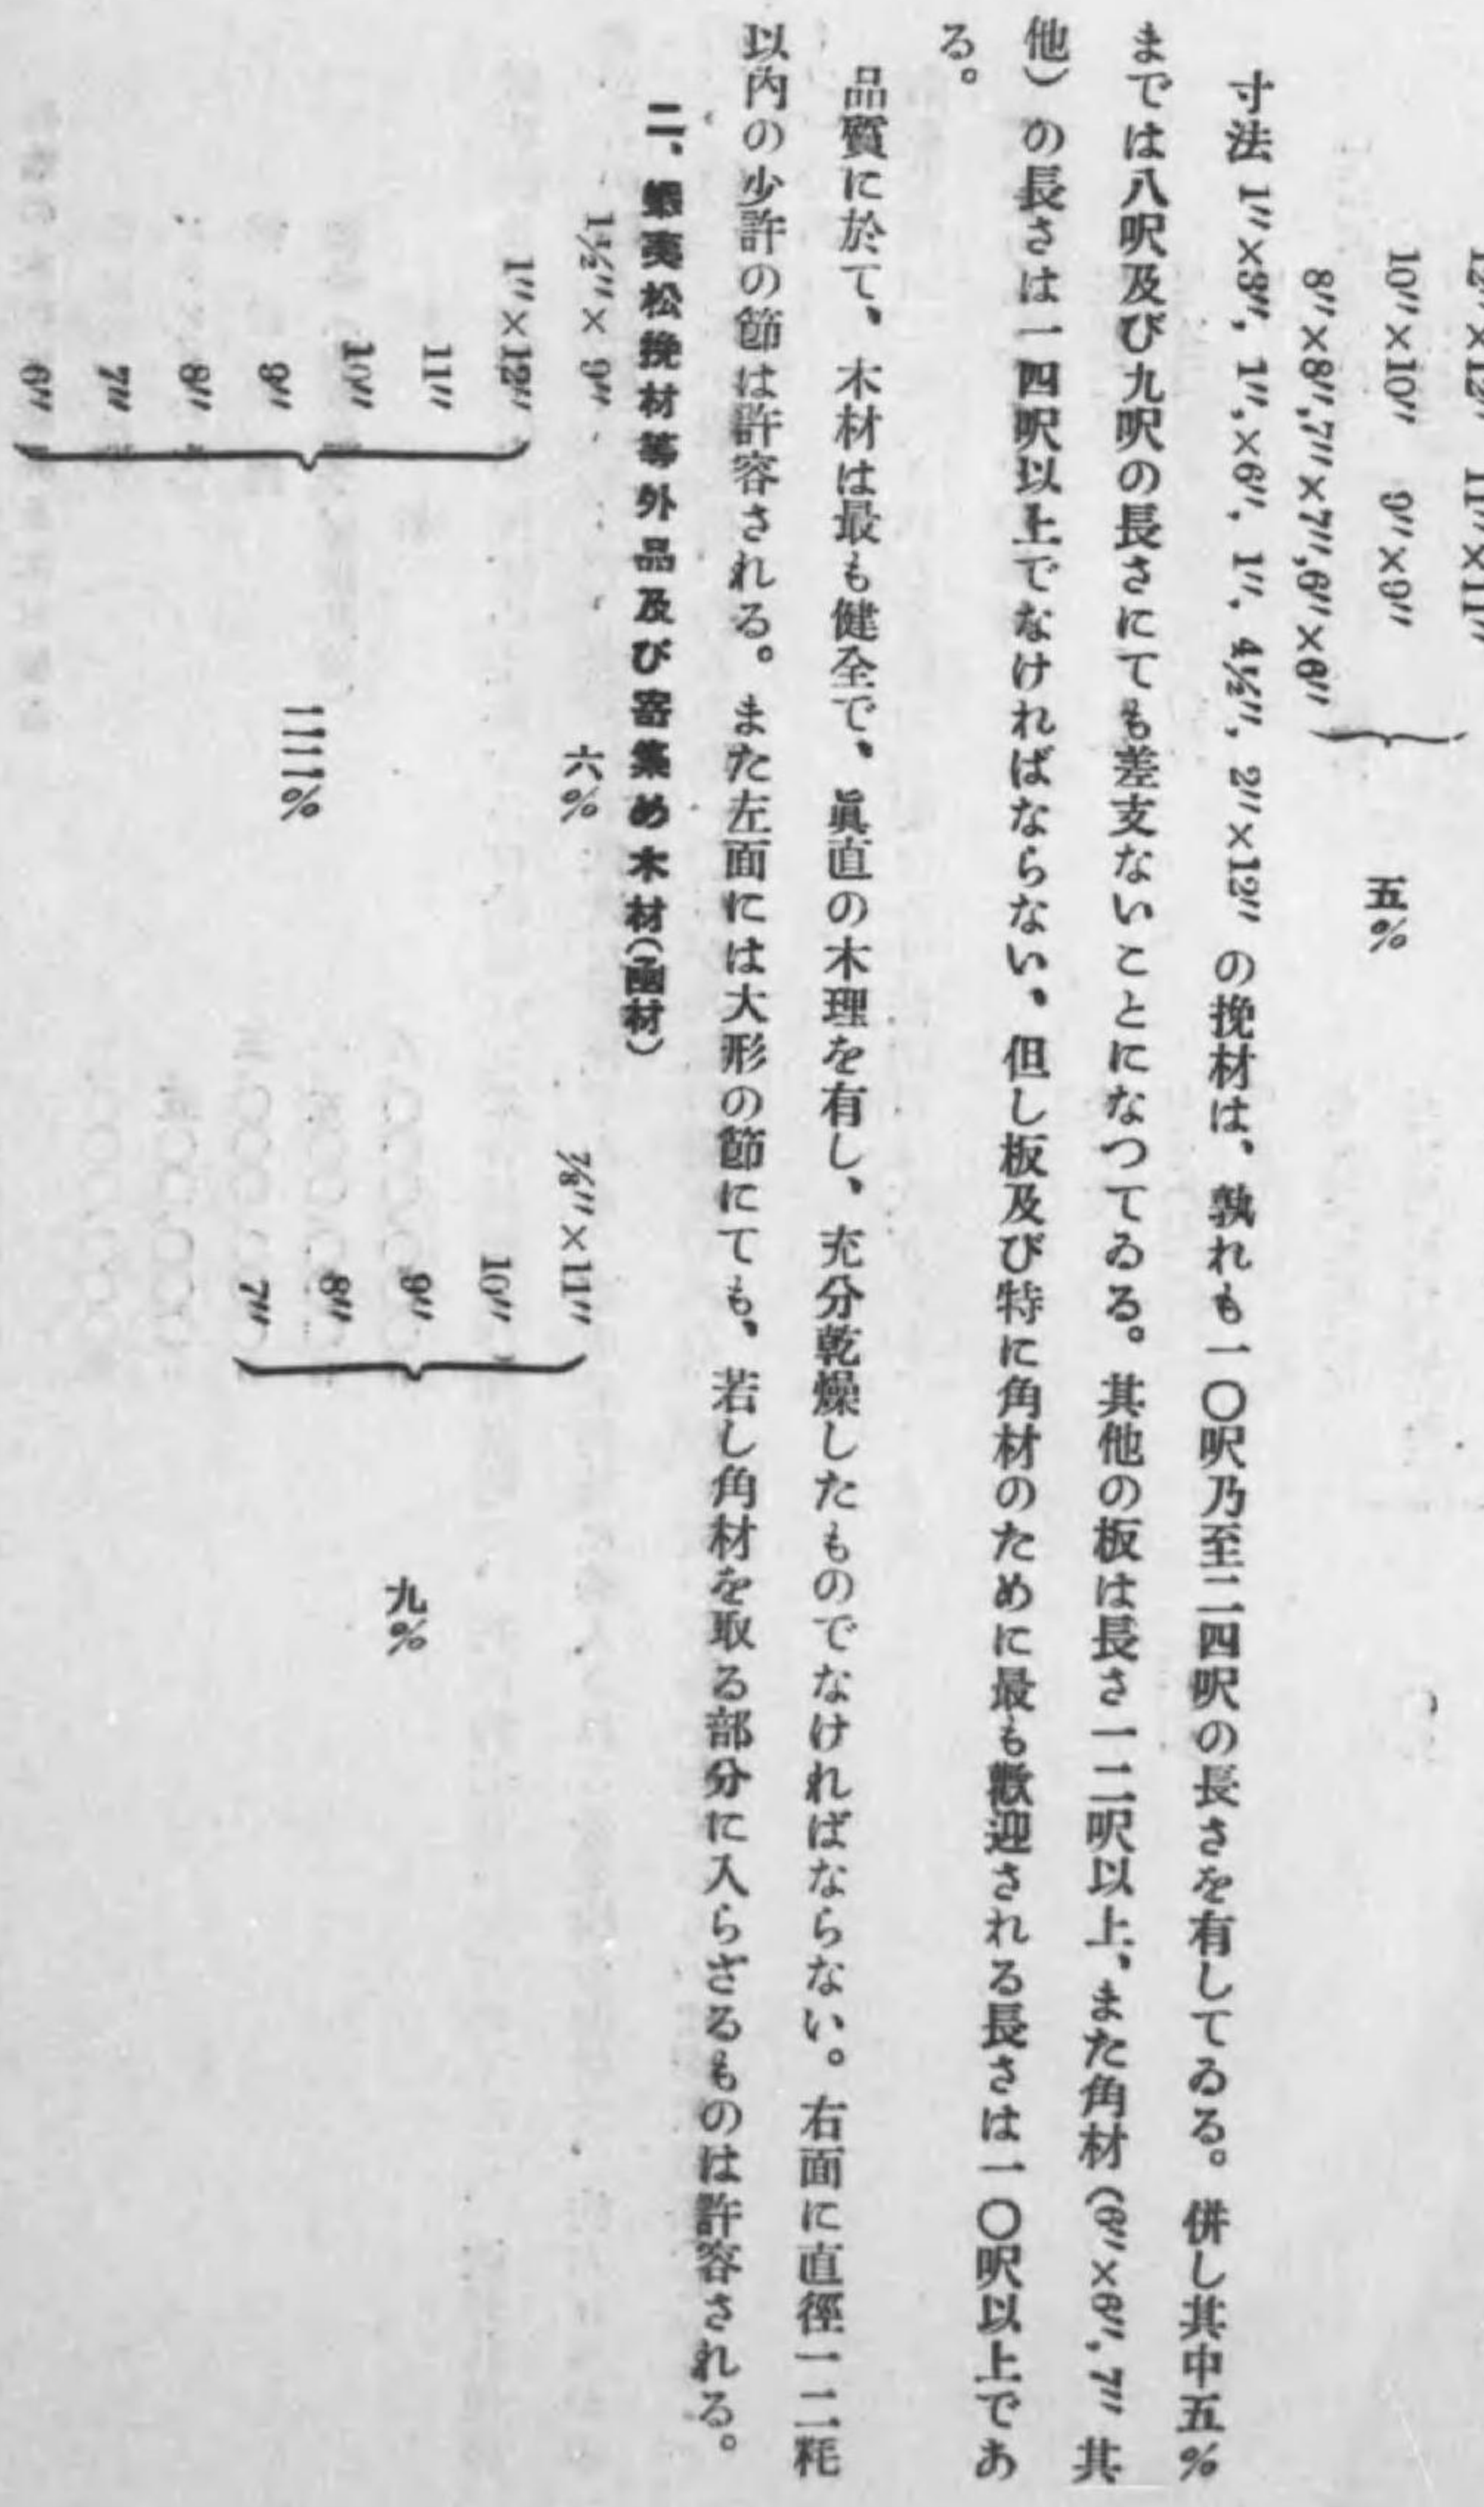 12″×12″　11″×11″
10″×10″　9″×9″
8″×8″,7″×7″,6″×6″
五%
寸法 1″×3″, 1″,×6″, 1″, 4½″, 2″×12″ の挽材は、孰れも一〇呎乃至二四呎の長さを有してゐる。併し其中五%
までは八呎及び九呎の長さにても差支ないことになつてゐる。其他の板は長さ一二呎以上、また角材(6″×6″, 7″ 其
他)の長さは一四呎以上でなければならない、但し板及び特に角材のために最も歡迎される長さは一〇呎以上であ
る。
品質に於て、木材は最も健全で、眞直の木理を有し、充分乾燥したものでなければならない。右面に直徑一二粍
以內の少許の節は許容される。また左面には大形の節にても、若し角材を取る部分に入らざるものは許容される。
二、蝦夷松挽材等外品及び寄集め木材(函材)
1½″× 9″　六%
1″×12″
11″
10″
9″
8″
7″
6″
⅞″×11″
10″
9″
8″
7″
九%